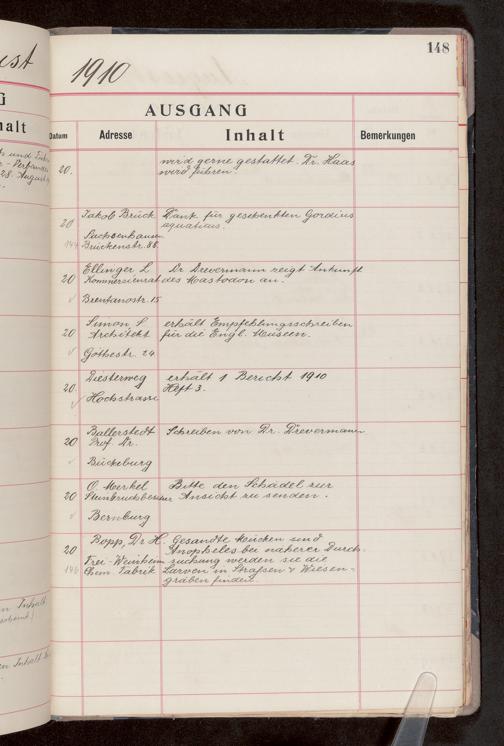 148
1910
AUSGANG
Datum Adresse Inhalt Bemerkungen
20. wird gerne gestattet. Dr. Haas
wird führen.
20 Jakob Bruck Dank für geschenkten Gordius
Sachsenhausen aquaticus.
144 Brückenstr. 88
Ellinger L. Dr Drevermann zeigt Ankunft
20 Kommerzienrat des Mastodon an.
Brentanostr. 15
Simon S. erhält Empfehlungsschreiben
20 Architekt für die Engl. Museen.
Göthestr. 24
Diesterweg erhält 1 Bericht 1910
20. Heft 3.
Hochstrasse
Ballerstedt Schreiben von Dr. Drevermann
20 Prof. Dr.
Bückeburg
O. Merkel Bitte den Schädel zur
20 Steinbruchbesitzer Ansicht zu senden.
Bernburg
Bopp, Dr H. Gesandte Mücken sind
20 Anopheles bei näherer Durch-
Frei-Weinheim suchung werden sie die
146 Chem. Fabrik Larven in Straßen & Wiesen-
gräben finden.
ust
G
halt
28. August